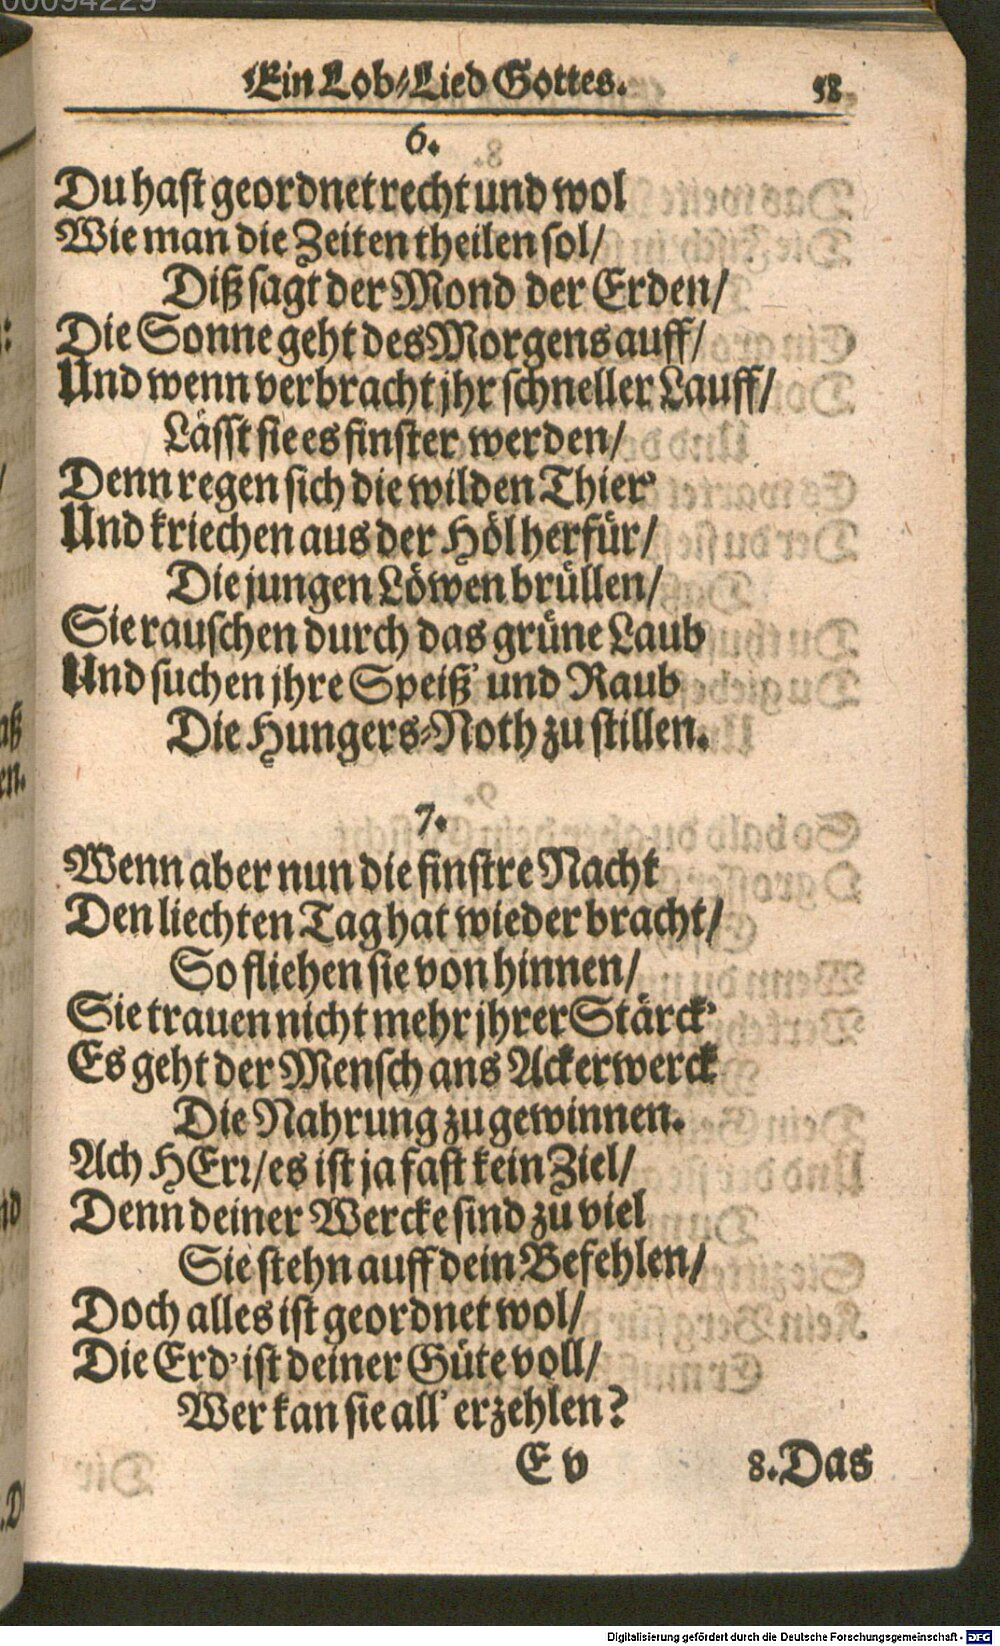 00094229
Ein Lob-Lied Gottes. 58
6.
Du hast geordnet recht und wol
Wie man die Zeiten theilen sol/
Diß sagt der Mond der Erden/
Die Sonne geht des Morgens auff/
Und wenn verbracht jhr schneller Lauff/
Lässt sie es finster werden/
Denn regen sich die wilden Thier'
Und kriechen aus der Höl herfür/
Die jungen Löwen brüllen/
Sie rauschen durch das grüne Laub
Und suchen jhre Speiß' und Raub
Die Hungers-Noth zu stillen.
7.
Wenn aber nun die finstre Nacht
Den liechten Tag hat wieder bracht/
So fliehen sie von hinnen/
Sie trauen nicht mehr jhrer Stärck'
Es geht der Mensch ans Ackerwerck
Die Nahrung zu gewinnen.
Ach HErr/ es ist ja fast kein Ziel/
Denn deiner Wercke sind zu viel
Sie stehn auff dein Befehlen/
Doch alles ist geordnet wol/
Die Erd' ist deiner Güte voll/
Wer kan sie all' erzehlen?
E v 8. Das
Digitalisierung gefördert durch die Deutsche Forschungsgemeinschaft - DFG